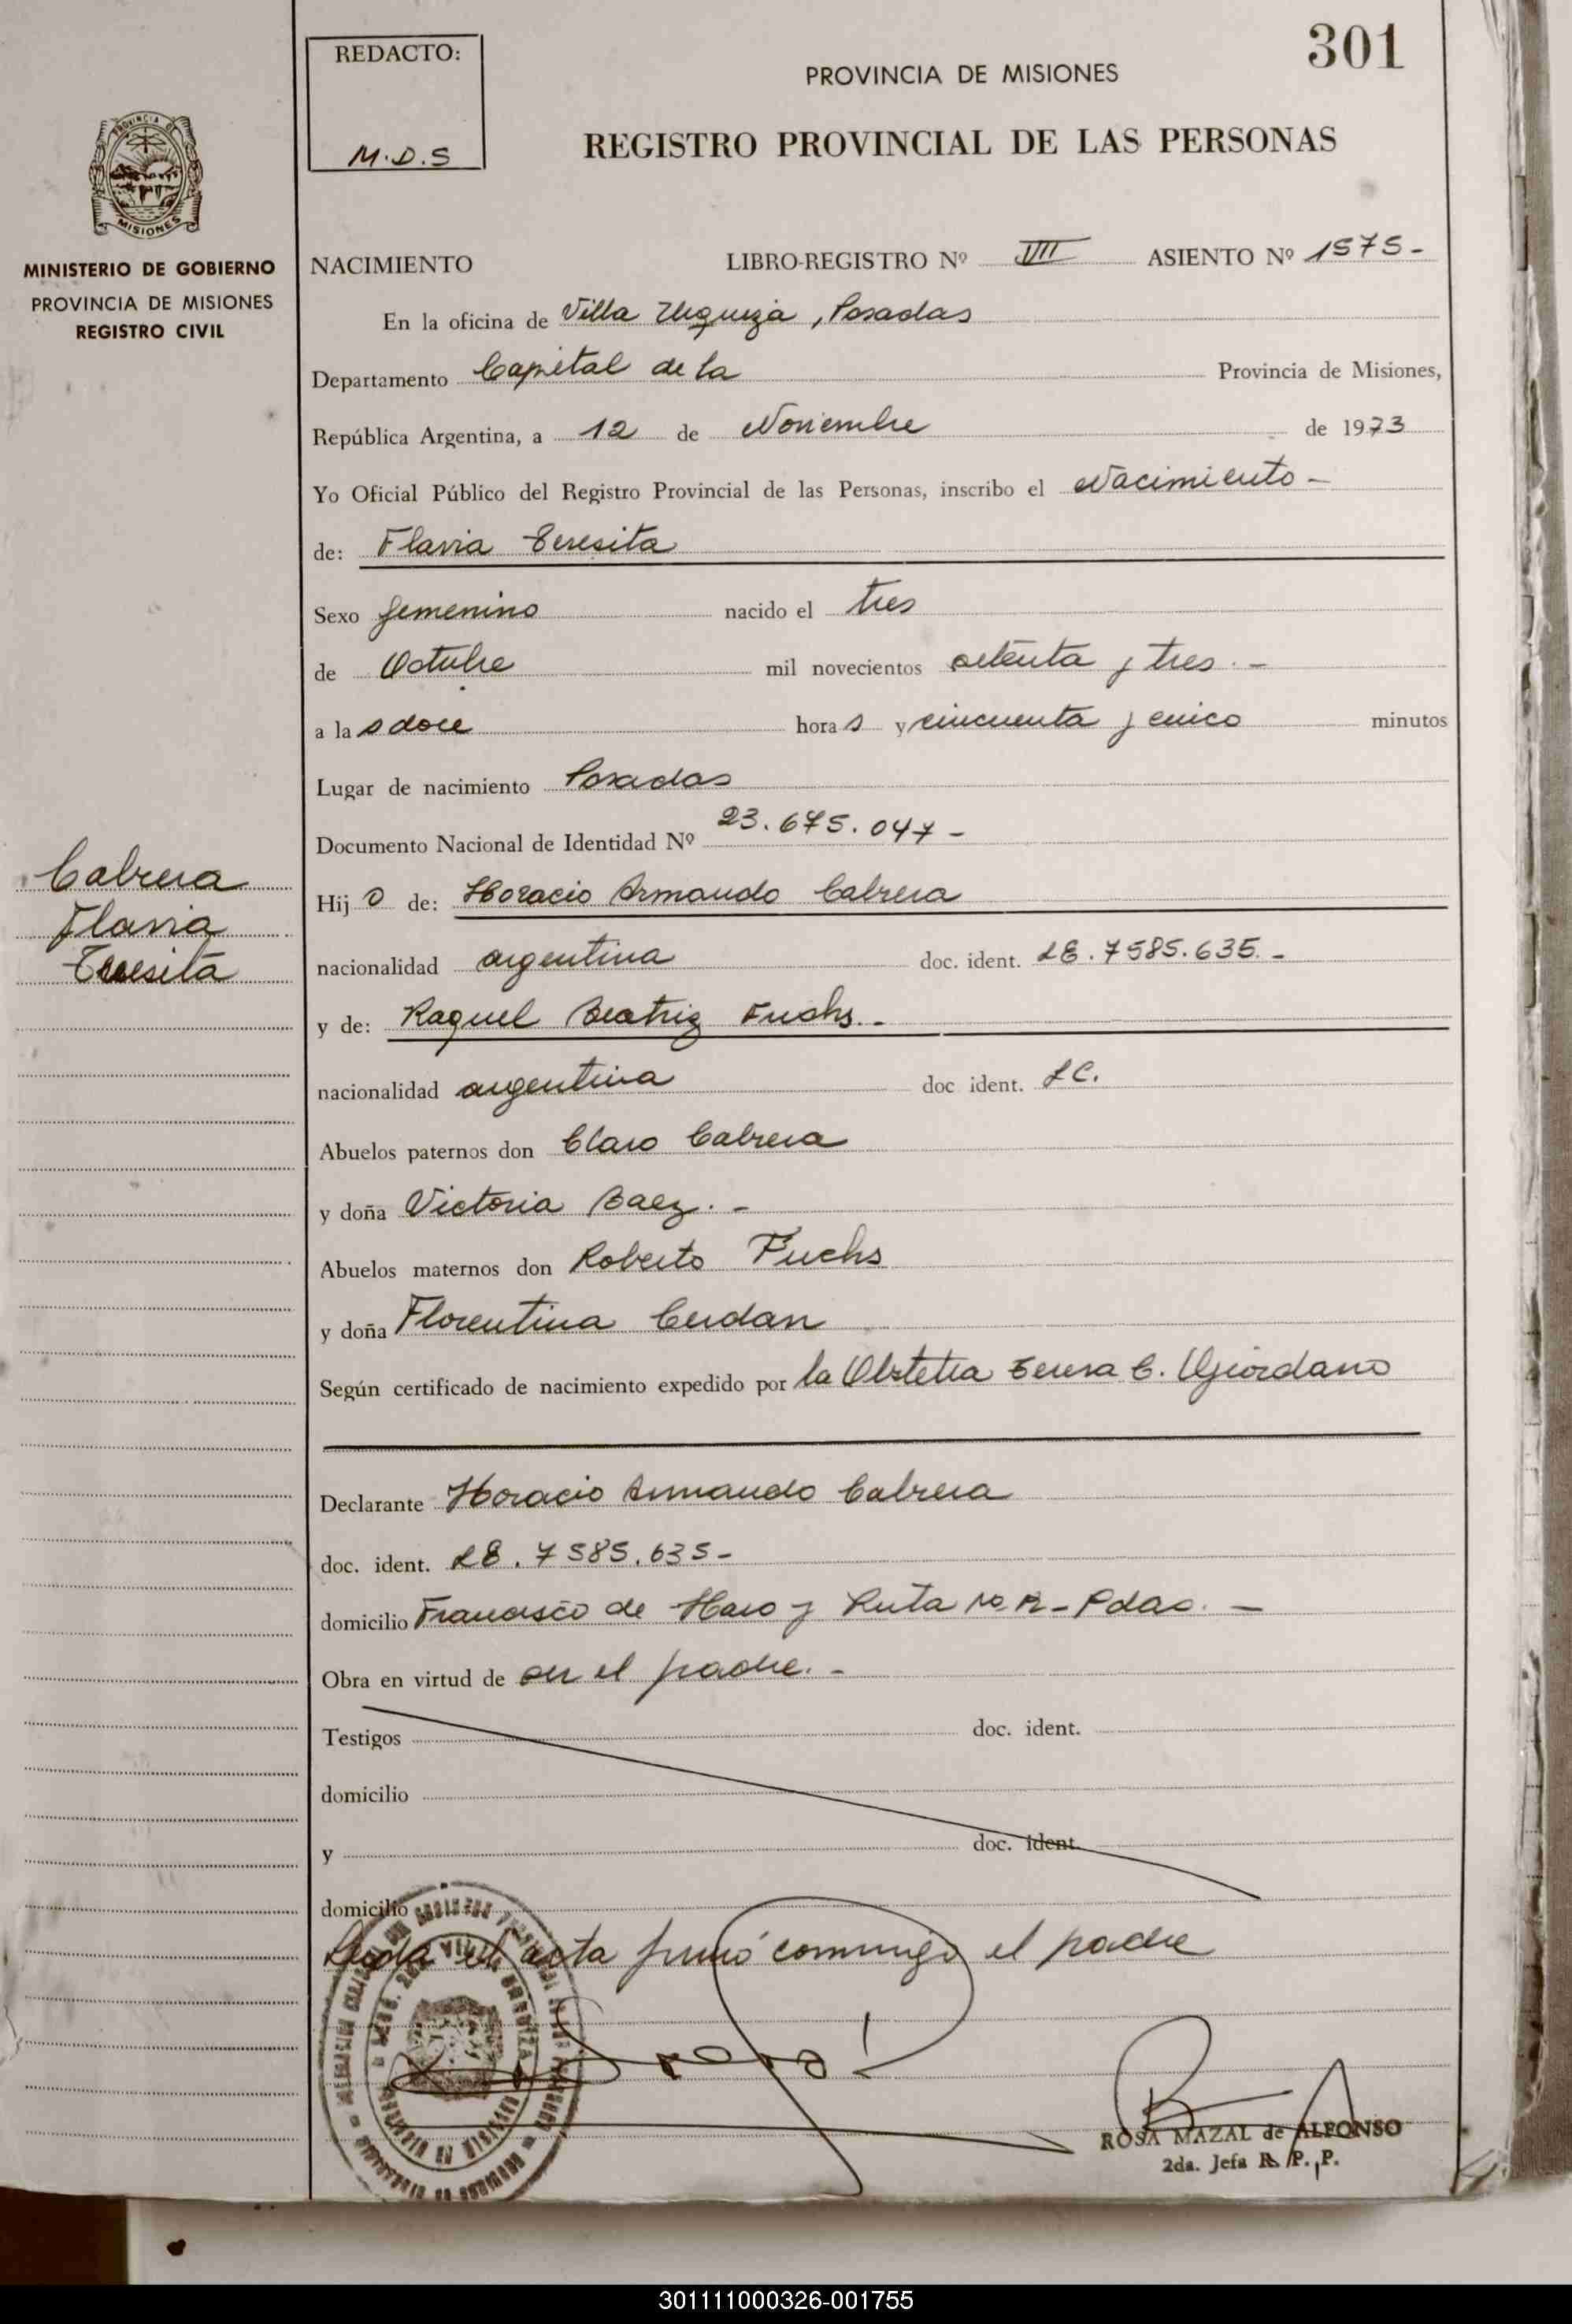 301
REDACTO:
M.D.S
PROVINCIA DE MISIONES
REGISTRO PROVINCIAL DE LAS PERSONAS
PROVINCIA DE
MISIONES
MINISTERIO DE GOBIERNO
PROVINCIA DE MISIONES
REGISTRO CIVIL
NACIMIENTO LIBRO-REGISTRO Nº VIII ASIENTO Nº 1575-
En la oficina de Villa Urquiza, Posadas
Departamento Capital de la Provincia de Misiones,
República Argentina, a 12 de Noviembre de 1973
Yo Oficial Público del Registro Provincial de las Personas, inscribo el Nacimiento -
de: Flavia Teresita
Sexo femenino nacido el tres
de Octubre mil novecientos setenta y tres. -
a la s doce hora s y cincuenta y cinco minutos
Lugar de nacimiento Posadas
Documento Nacional de Identidad Nº 23.675.047-
Cabrera
Flavia
Teresita
Hij a de: Horacio Armando Cabrera
nacionalidad argentina doc. ident. LE. 7585.635. -
y de: Raquel Beatriz Fuchs. -
nacionalidad argentina doc ident. LC.
Abuelos paternos don Claro Cabrera
y doña Victoria Baez. -
Abuelos maternos don Roberto Fuchs
y doña Florentina Cerdan
Según certificado de nacimiento expedido por la Obstetra Teresa C. Giordano
Declarante Horacio Armando Cabrera
doc. ident. LE. 7585.635-
domicilio Francisco de Haro y Ruta Nº 12 - Pdas. -
Obra en virtud de ser el padre. -
Testigos doc. ident.
domicilio
y doc. ident.
domicilio
Leída el acta firmó conmigo el padre
ROSA MAZAL de ALFONSO
2da. Jefa R. P. P.
301111000326-001755